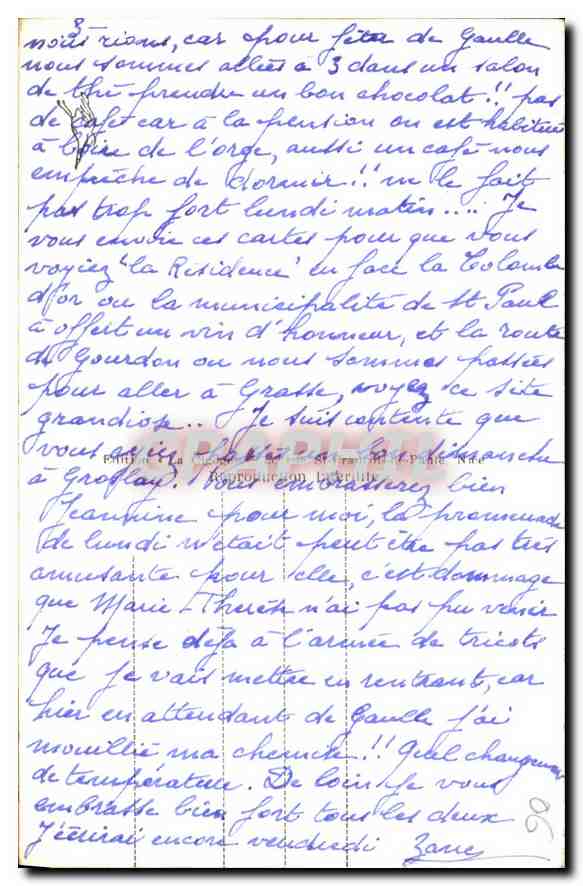 3
nous rions, car pour fêter de Gaulle
nous sommes allées à 3 dans un salon
de thé prendre un bon chocolat!! pas
de café car à la pension on est habitué
à boire de l'orge, aussi un café nous
empêche de dormir!! ne le fait
pas trop fort lundi matin.... Je
vous envoie ces cartes pour que vous
voyiez "la Résidence" en face la Colombe
d'or ou la municipalité de St Paul
à offert un vin d'honneur, et la route
de Gourdon ou nous sommes passées
pour aller à Grasse, voyez ce site
grandiose.. Je suis contente que
vous ayiez dimanche
Edition La Cigogne
à Groslay. Vous embrasserez bien
Reproduction Interdite
Jeannine pour moi, la promenade
de lundi n'était peut être pas très
amusante pour elle, c'est dommage
que Marie-Thérèse n'ai pas pu venir
Je pense déjà à l'armée de tricots
que je vais mettre en rentrant, car
hier en attendant de Gaulle j'ai
mouillé ma chemise!! Quel changement
de température. De loin je vous
embrasse bien fort tous les deux
J'écrirai encore vendredi